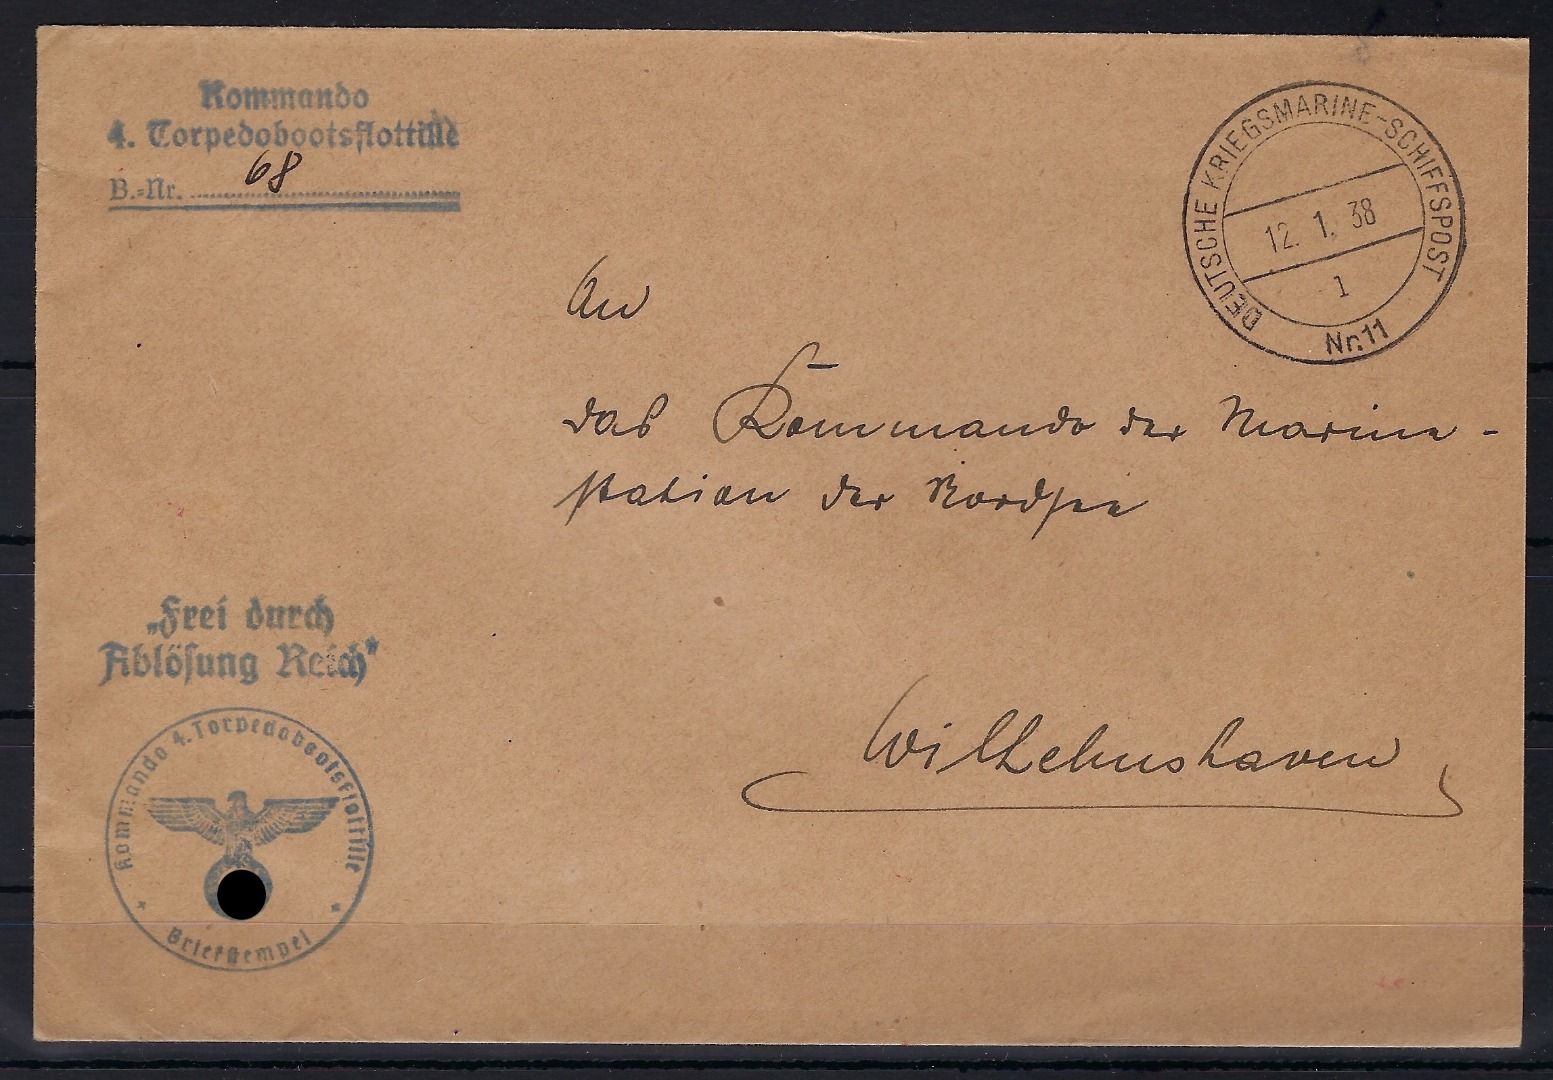 Kommando
4. Torpedobootsflottille
B.-Nr. 68
DEUTSCHE KRIEGSMARINE-SCHIFFSPOST
12. 1. 38
1
Nr. 11
An
das Kommando der Marine-
station der Nordsee
Wilhelmshaven
„Frei durch
Ablösung Reich"
Kommando 4. Torpedobootsflottille
Briefstempel